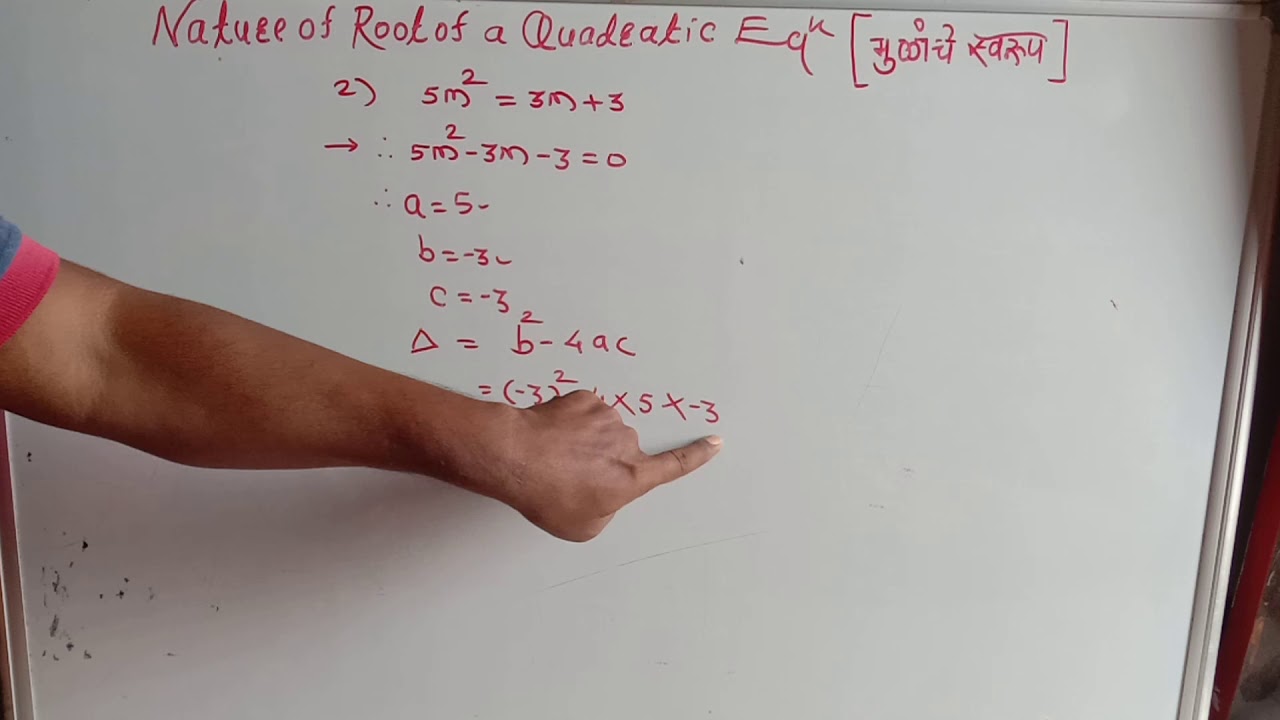 Nature of Root of a Quadratic Eqⁿ [मुळांचे स्वरूप]
2) 5m² = 3m + 3
→ ∴ 5m² - 3m - 3 = 0
∴ a = 5
b = -3
c = -3
Δ = b² - 4ac
= (-3)² × 5 × -3